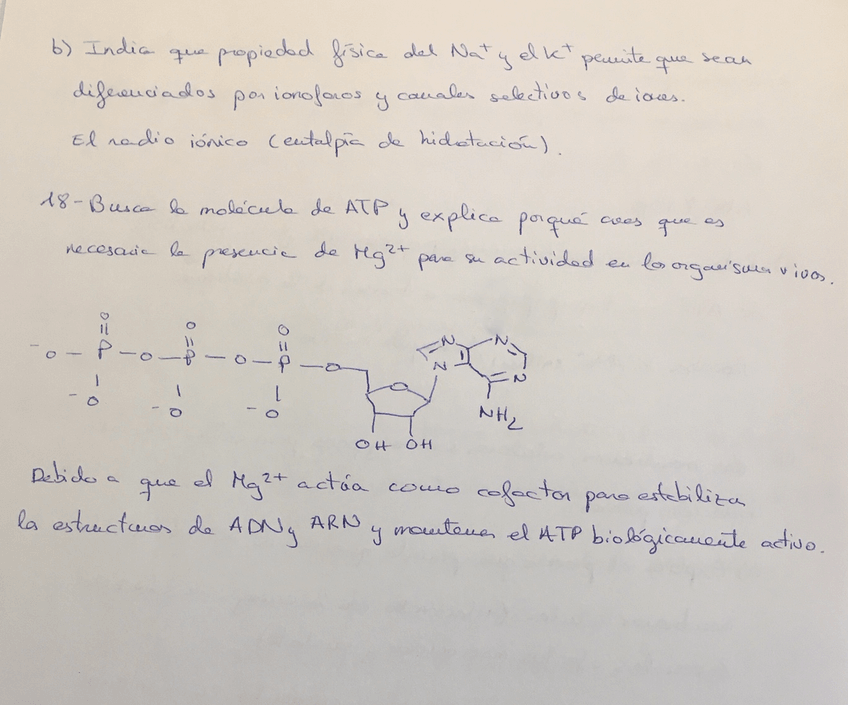 b) Indica que propiedad física del Na⁺ y el K⁺ permite que sean
diferenciados por ionoforos y canales selectivos de iones.
El radio iónico (entalpía de hidratación).
18- Busca la molécula de ATP y explica porqué crees que es
necesaria la presencia de Mg²⁺ para su actividad en los organismos vivos.
O O O
⁻O - P - O - P - O - P - O
⁻O ⁻O ⁻O
O
N N
N N
NH₂
OH OH
Debido a que el Mg²⁺ actúa como cofactor para estabilizar
la estructuras de ADN y ARN y mantener el ATP biológicamente activo.